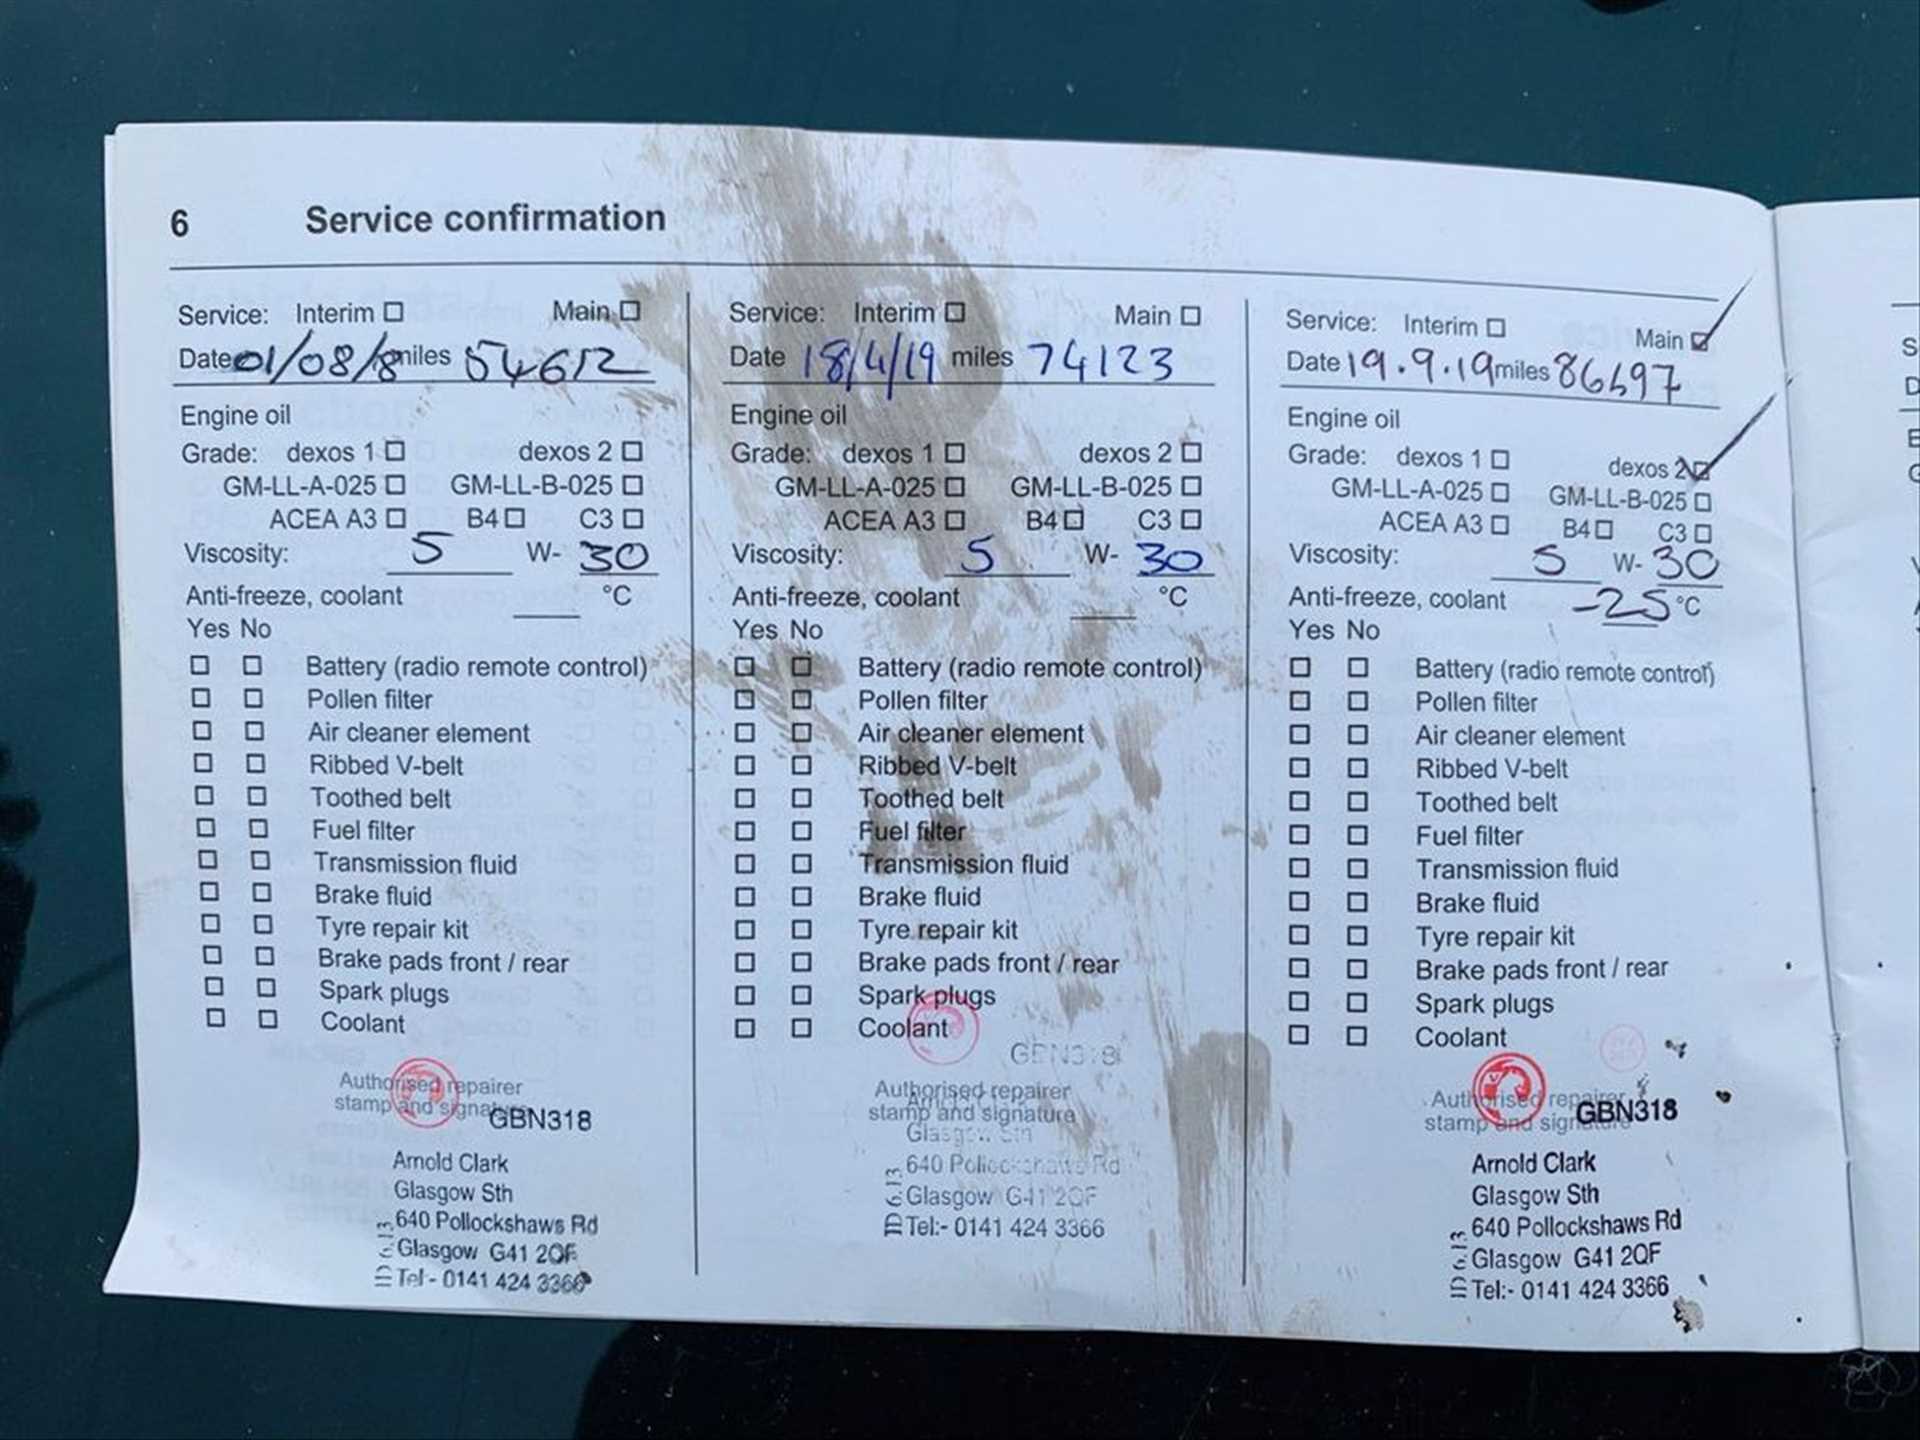 6 Service confirmation
Service: Interim ☐ Main ☐
Date 01/08/18 miles 54612
Engine oil
Grade: dexos 1 ☐ dexos 2 ☐
GM-LL-A-025 ☐ GM-LL-B-025 ☐
ACEA A3 ☐ B4 ☐ C3 ☐
Viscosity: 5 W- 30
Anti-freeze, coolant °C
Yes No
☐ ☐ Battery (radio remote control)
☐ ☐ Pollen filter
☐ ☐ Air cleaner element
☐ ☐ Ribbed V-belt
☐ ☐ Toothed belt
☐ ☐ Fuel filter
☐ ☐ Transmission fluid
☐ ☐ Brake fluid
☐ ☐ Tyre repair kit
☐ ☐ Brake pads front / rear
☐ ☐ Spark plugs
☐ ☐ Coolant
Authorised repairer
stamp and signature
GBN318
Arnold Clark
Glasgow Sth
640 Pollockshaws Rd
Glasgow G41 2QF
Tel:- 0141 424 3366
Service: Interim ☐ Main ☐
Date 18/4/19 miles 74123
Engine oil
Grade: dexos 1 ☐ dexos 2 ☐
GM-LL-A-025 ☐ GM-LL-B-025 ☐
ACEA A3 ☐ B4 ☐ C3 ☐
Viscosity: 5 W- 30
Anti-freeze, coolant °C
Yes No
☐ ☐ Battery (radio remote control)
☐ ☐ Pollen filter
☐ ☐ Air cleaner element
☐ ☐ Ribbed V-belt
☐ ☐ Toothed belt
☐ ☐ Fuel filter
☐ ☐ Transmission fluid
☐ ☐ Brake fluid
☐ ☐ Tyre repair kit
☐ ☐ Brake pads front / rear
☐ ☐ Spark plugs
☐ ☐ Coolant
GBN318
Authorised repairer
stamp and signature
Glasgow Sth
640 Pollockshaws Rd
Glasgow G41 2QF
Tel:- 0141 424 3366
Service: Interim ☐ Main ☑
Date 19.9.19 miles
Engine oil
Grade: dexos 1 ☐ dexos 2 ☑
GM-LL-A-025 ☐ GM-LL-B-025 ☐
ACEA A3 ☐ B4 ☐ C3 ☐
Viscosity: 5 W- 30
Anti-freeze, coolant -25 °C
Yes No
☐ ☐ Battery (radio remote control)
☐ ☐ Pollen filter
☐ ☐ Air cleaner element
☐ ☐ Ribbed V-belt
☐ ☐ Toothed belt
☐ ☐ Fuel filter
☐ ☐ Transmission fluid
☐ ☐ Brake fluid
☐ ☐ Tyre repair kit
☐ ☐ Brake pads front / rear
☐ ☐ Spark plugs
☐ ☐ Coolant
Authorised repairer
stamp and signature
GBN318
Arnold Clark
Glasgow Sth
640 Pollockshaws Rd
Glasgow G41 2QF
Tel:- 0141 424 3366